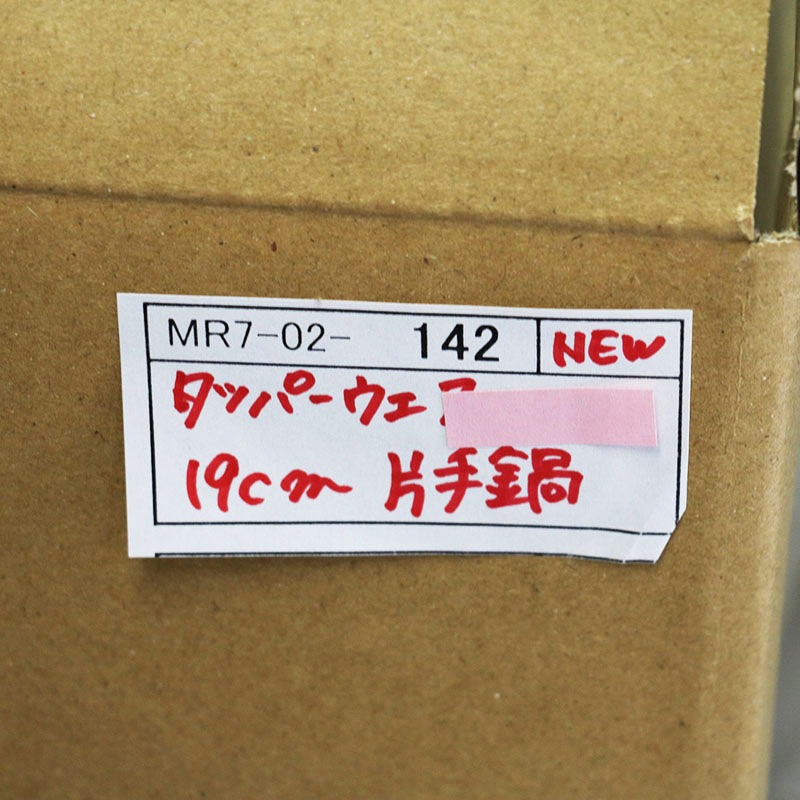 MR7-02- 142 NEW
タッパーウェ
19cm 片手鍋